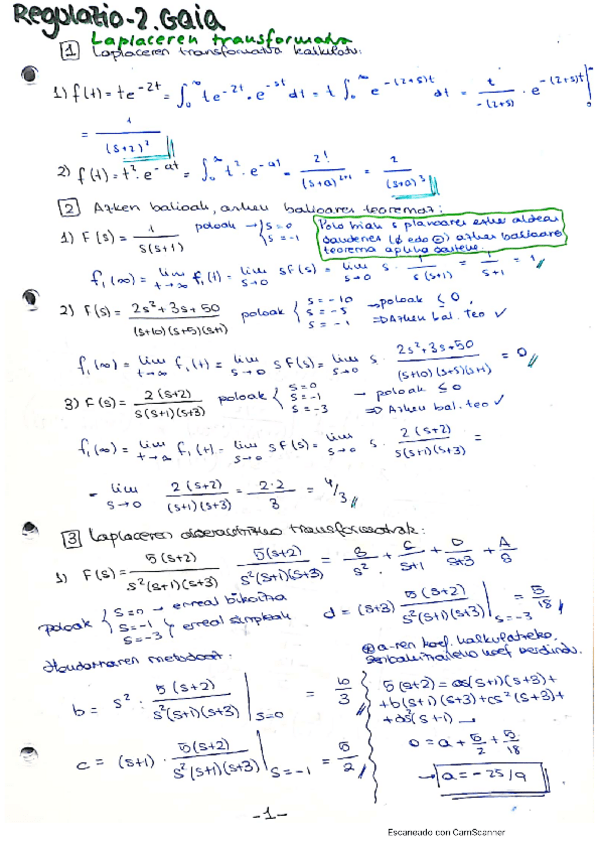 Regulazio-2.Gaia
Laplaceren transformatua
1 Laplaceren transformatua kalkulatu:
1) f(t) = te^-2t = ∫₀^∞ te^-2t · e^-st dt = t ∫₀^∞ e^-(2+s)t dt = t/-(2+s) · e^-(2+s)t |₀^∞
= 1/(s+2)²
2) f(t) = t² · e^-at = ∫₀^∞ t² · e^-at = 2!/(s+a)^2+1 = 2/(s+a)³
2 Azken balioak, azken balioaren teorema:
1) F(s) = 1/s(s+1) poloak → { s=0 s=-1
Polo hiak s planoaren ezker aldean
daudenez (∅ edo ⊖) azken balioaren
teorema aplika daiteke.
f₁(∞) = lim t→∞ f₁(t) = lim s→0 sF(s) = lim s→0 s · 1/s(s+1) = 1/s+1 = 1
2) F(s) = 2s²+3s+50/(s+10)(s+5)(s+1) poloak { s=-10 s=-5 s=-1 → poloak ≤ 0, ⇒ Azken bal. teo ✓
f₁(∞) = lim t→∞ f₁(t) = lim s→0 sF(s) = lim s→0 s · 2s²+3s+50/(s+10)(s+5)(s+1) = 0
3) F(s) = 2(s+2)/s(s+1)(s+3) poloak { s=0 s=-1 s=-3 → poloak ≤ 0 ⇒ Azken bal. teo ✓
f₁(∞) = lim t→∞ f₁(t) = lim s→0 sF(s) = lim s→0 s · 2(s+2)/s(s+1)(s+3) =
= lim s→0 2(s+2)/(s+1)(s+3) = 2·2/3 = 4/3
3 Laplaceren alderantzizko transformatuak:
1) F(s) = 5(s+2)/s²(s+1)(s+3) 5(s+2)/s²(s+1)(s+3) = B/s² + C/s+1 + D/s+3 + A/s
poloak { s=0 → erreal bikoitza s=-1 s=-3 } erreal sinpleak
d = (s+3) 5(s+2)/s²(s+1)(s+3) |s=-3 = 5/18
metodoa:
b = s² · 5(s+2)/s²(s+1)(s+3) |s=0 = 10/3
c = (s+1) · 5(s+2)/s²(s+1)(s+3) |s=-1 = 5/2
a-ren koef. kalkulatzeko,
koef berdindu.
5(s+2) = as(s+1)(s+3)+
+b(s+1)(s+3)+cs²(s+3)+
+ds²(s+1) →
0 = a + 5/2 + 5/18
→ a = -25/9
-1-
Escaneado con CamScanner